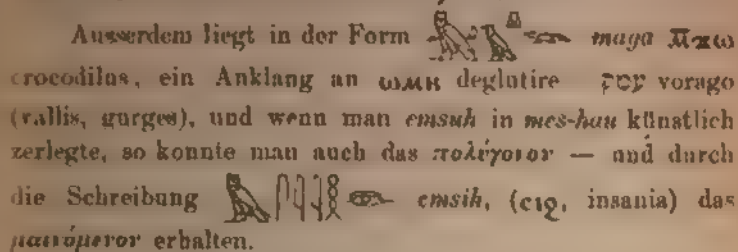 Ausserdem liegt in der Form 𓅓𓄿𓎼𓆊 maga ⲙ̄ϫⲱ
crocodilus, ein Anklang an ⲱⲙⲕ deglutire עמק vorago
(vallis, gurges), und wenn man emsuh in mes-hau künstlich
zerlegte, so konnte man auch das πολύγονον — und durch
die Schreibung 𓅓𓋴𓇋𓇋𓎛𓆊 emsih, (ⲥⲓϩ, insania) das
μαινόμενον erhalten.